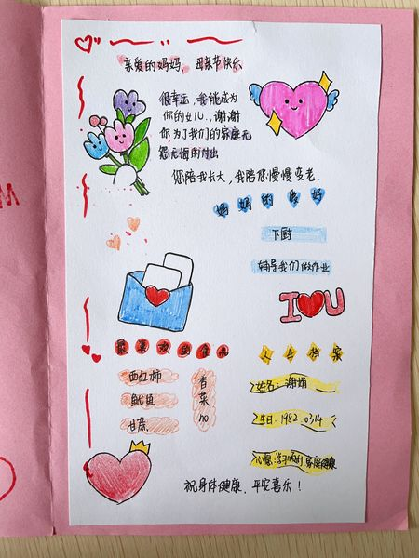 亲爱的妈妈，母亲节快乐
很幸运，我能成为
你的女儿，谢谢
你为了我们的家庭无
怨无悔的付出
你陪我长大，我陪您慢慢变老
妈妈的爱好
下厨
辅导我们做作业
I U
最喜欢的
个人档案
西红柿
鱿鱼
甘蔗
香菜
no
姓名：谢
生日：1982.03.14
祝身体健康、平安喜乐！